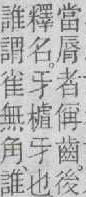 當脣者偁齒。後
釋名。牙樝牙也
誰謂雀無角誰